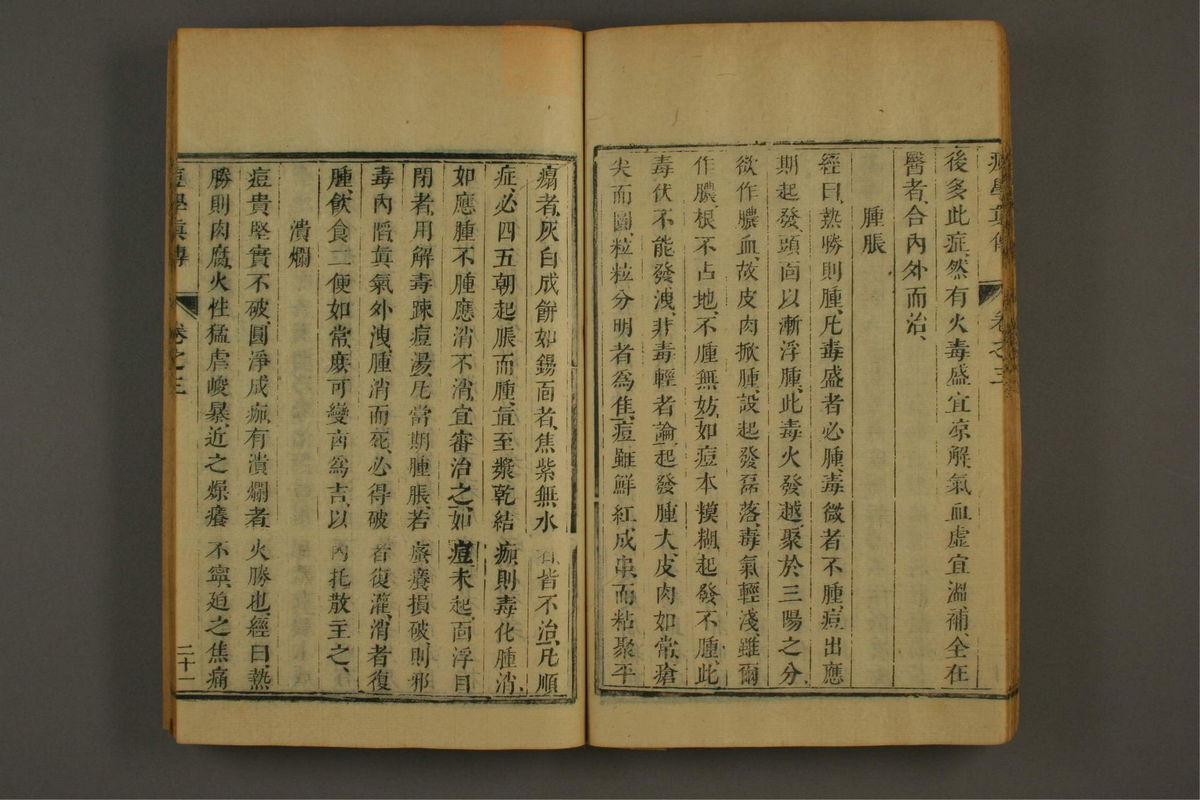 痘學真傳 卷之三
後多此症然有火毒盛宜凉解氣血虛宜溫補全在
醫者合內外而治
腫脹
經曰熱勝則腫凡毒盛者必腫毒微者不腫痘出應
期起發頭面以漸浮腫此毒火發越聚於三陽之分
欲作膿血故皮肉掀腫設起發磊落毒氣輕淺雖爾
作膿根不占地不腫無妨如痘本模糊起發不腫此
毒伏不能發洩非毒輕者論起發腫大皮肉如常瘡
尖而圓粒粒分明者為佳痘雖鮮紅成串而粘聚平
塌者灰白成餅如錫面者焦紫無水者皆不治凡順
症必四五朝起脹而腫直至漿乾結痂則毒化腫消
如應腫不腫應消不消宜審治之如痘未起面浮目
閉者用解毒踈痘湯凡當期腫脹若瘙癢損破則邪
毒內陷真氣外洩腫消而死必得破者復灌消者復
腫飲食二便如常庶可變凶為吉以內托散主之
潰爛
痘貴堅實不破圓淨成痂有潰爛者火勝也經曰熱
勝則肉腐火性猛虐峻暴近之燥癢不寧廹之焦痛
痘學真傳 卷之三 二十一